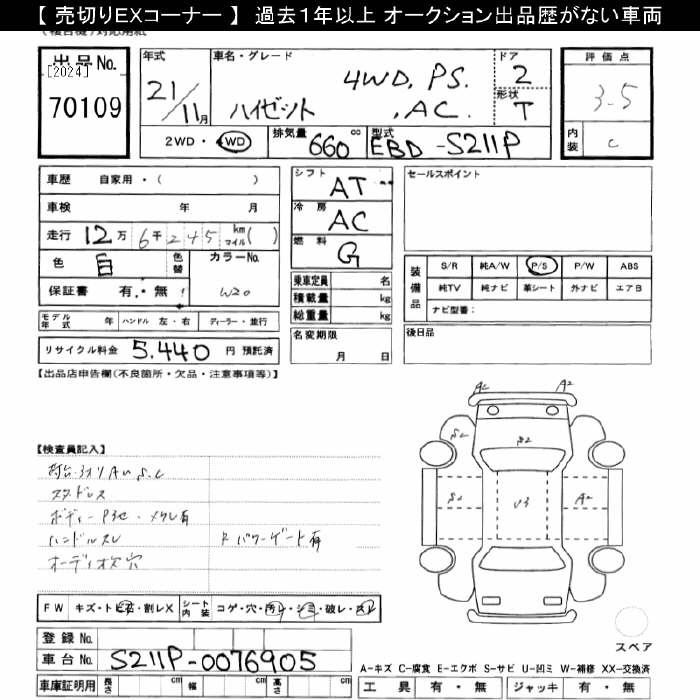 【 売切りEXコーナー 】 過去1年以上 オークション出品歴がない車両
出品No.
[2024]
70109
年式
21/11月
車名・グレード
4WD, PS.
ハイゼット , AC.
ドア
2
形状
T
2WD・4WD
排気量 660 cc
型式 EBD-S211P
評価点
3.5
内装 C
車歴 自家用・( )
車検 年 月
走行 12万6千245 km マイル( )
色 白 色替
カラーNo. W20
保証書 有・無
モデル年式 年 ハンドル 左・右 ディーラー・並行
リサイクル料金 5,440 円 預託済
シフト AT
冷房 AC
燃料 G
乗車定員 名
積載量 kg
総重量 kg
名変期限
月 日
セールスポイント
装備品
S/R 純A/W P/S P/W ABS
純TV 純ナビ 革シート 外ナビ エアB
ナビ型番：
後日品
【出品店申告欄(不良箇所・欠品・注意事項等)】
【検査員記入】
スタドレス
ハンドルスレ
オーディオ欠穴
R パワーゲート有
A2
A2
S2
U3
FW キズ・トビ石・割レX シート内装 コゲ・穴・汚レ・シミ・破レ・スレ
登録No.
車台No. S211P-0076905
車庫証明用 長さ cm 幅 cm 高さ cm
スペア
A-キズ C-腐食 E-エクボ S-サビ U-凹ミ W-補修 XX-交換済
工具 有・無 ジャッキ 有・無